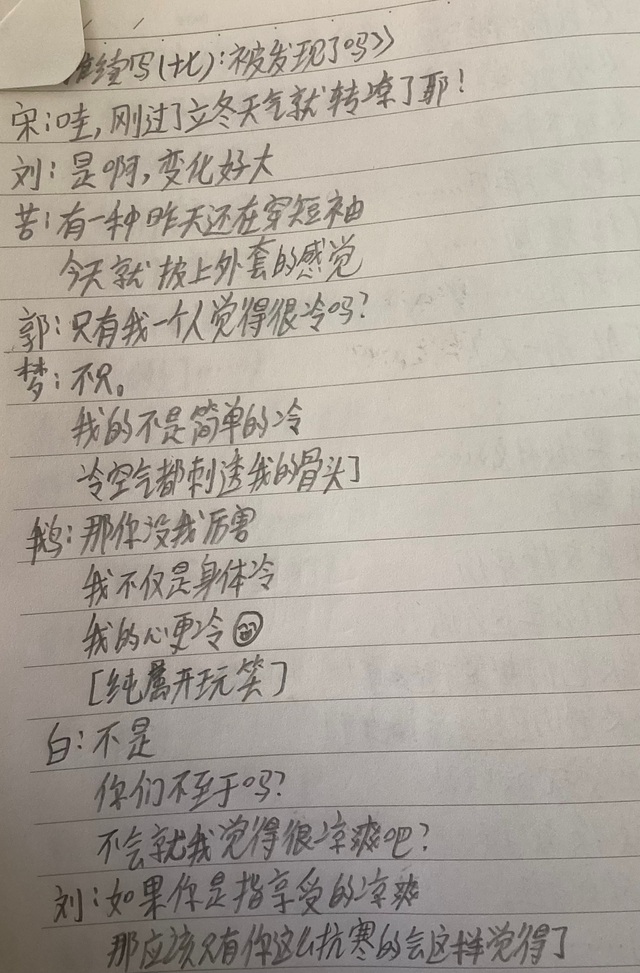 续写(十七):被发现了吗》
宋:哇,刚过了立冬天气就转凉了耶!
刘:是啊,变化好大
苦:有一种昨天还在穿短袖
今天就披上外套的感觉
郭:只有我一个人觉得很冷吗?
梦:不只。
我的不是简单的冷
冷空气都刺透我的骨头了
鹅:那你没我厉害
我不仅是身体冷
我的心更冷
[纯属开玩笑]
白:不是
你们不至于吗?
不会就我觉得很凉爽吧?
刘:如果你是指享受的凉爽
那应该只有你这么抗寒的会这样觉得了